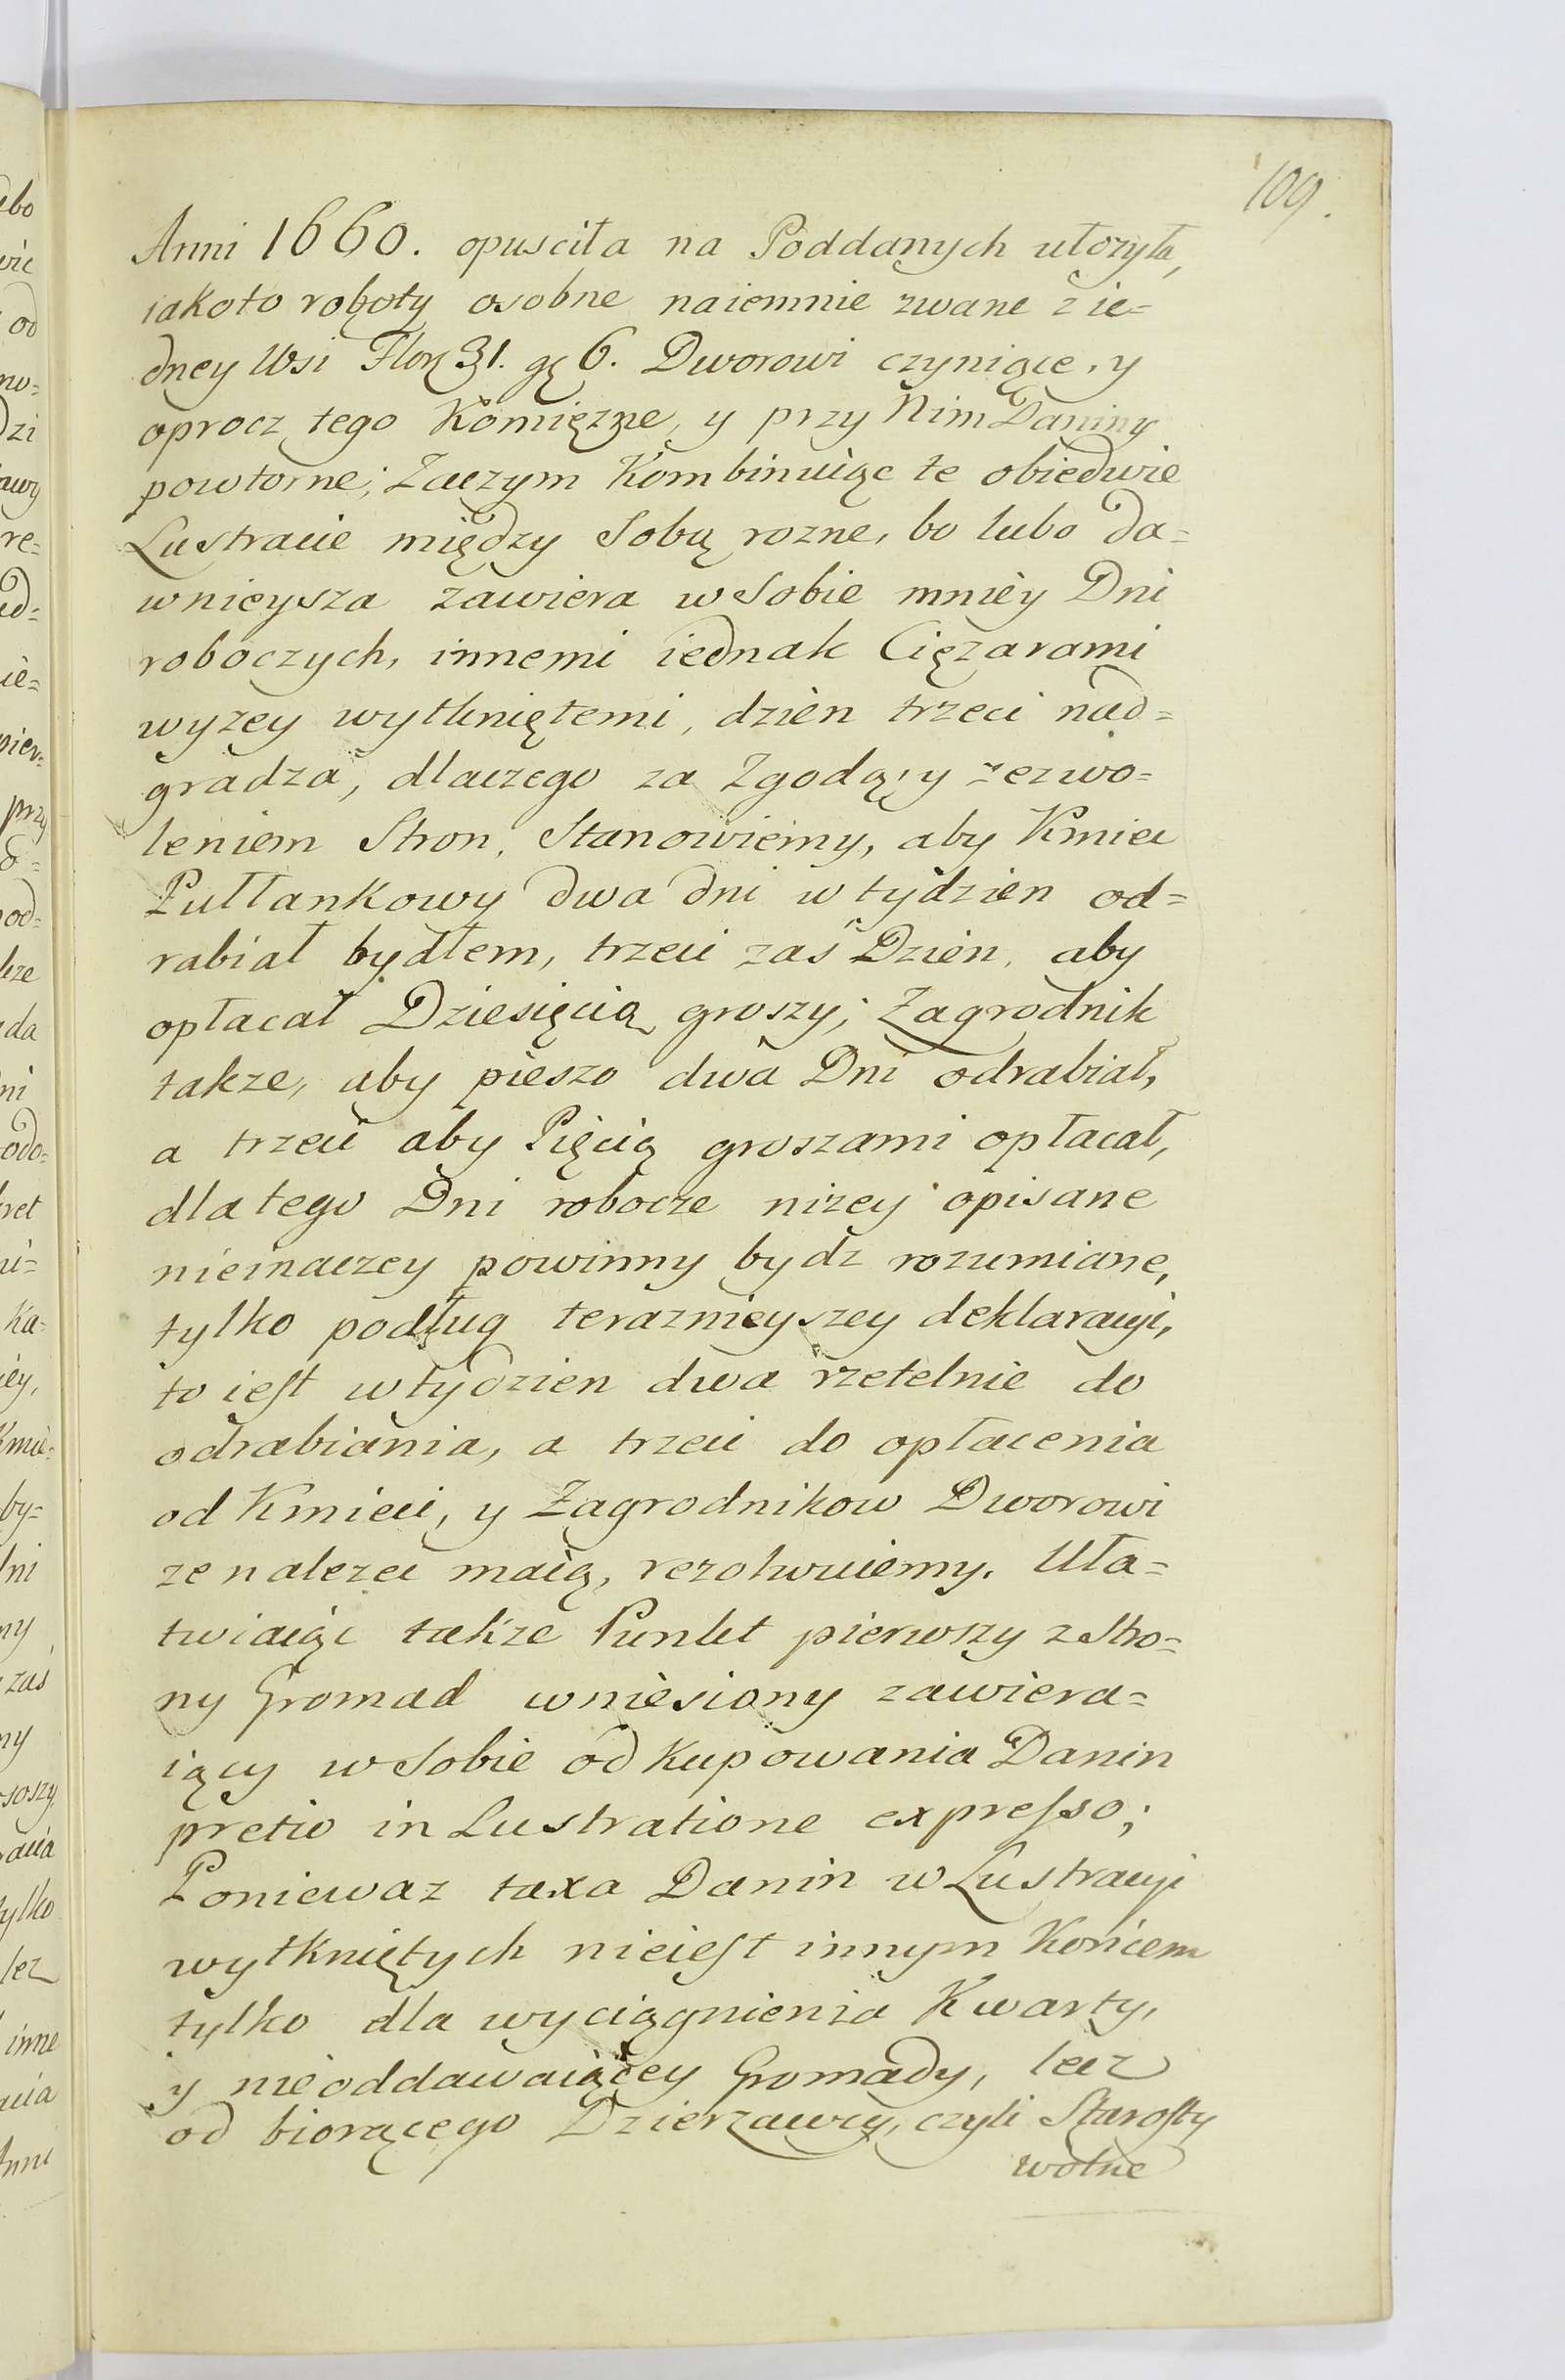 109.
Anni 1660. opusciła na Poddanych ułozyła,
iakoto roboty osobne naiemnie zwane z ie=
dney Wsi Flor 31. gę 6. Dworowi czyniące, y
oprocz tego Komięzne, y przy Nim Daniny
powtorne; Zaczym Kombinuiąc te obiedwie
Lustracie między Sobą rozne, bo lubo da=
wnieysza zawiera w Sobie mniey Dni
roboczych, innemi iednak Ciężarami
wyzey wytkniętemi, dzien trzeci nad=
gradza, dlaczego za Zgodą, y zezwo=
leniem Stron, Stanowiemy, aby Kmiec
Pułłankowy dwa dni w tydzien od=
rabiał bydłem, trzeci zaś Dzien, aby
opłacał Dziesięcią groszy; Zagrodnik
takze, aby pieszo dwa Dni odrabiał,
a trzeci aby Pięcią groszami opłacał,
dla tego Dni robocze nizey opisane
nieinaczey powinny bydz rozumiane,
tylko podług teraznieyszey deklaracyi,
to iest w tydzien dwa rzetelnie do
odrabiania, a trzeci do opłacenia
od Kmieci, y Zagrodnikow Dworowi
ze nalezec maią, rezolwuiemy. Uła=
twiaiąc także Punkt pierwszy z Stro=
ny Gromad wniesiony zawiera=
iący w Sobie odkupowania Danin
pretio in Lustratione expresso;
Poniewaz taxa Danin w Lustracyi
wytkniętych nieiest innym Końcem
tylko dla wyciągnienia Kwarty,
y nieoddawaiącey Gromady, lecz
od biorącego Dzierzawcy, czyli Starosty
wolne